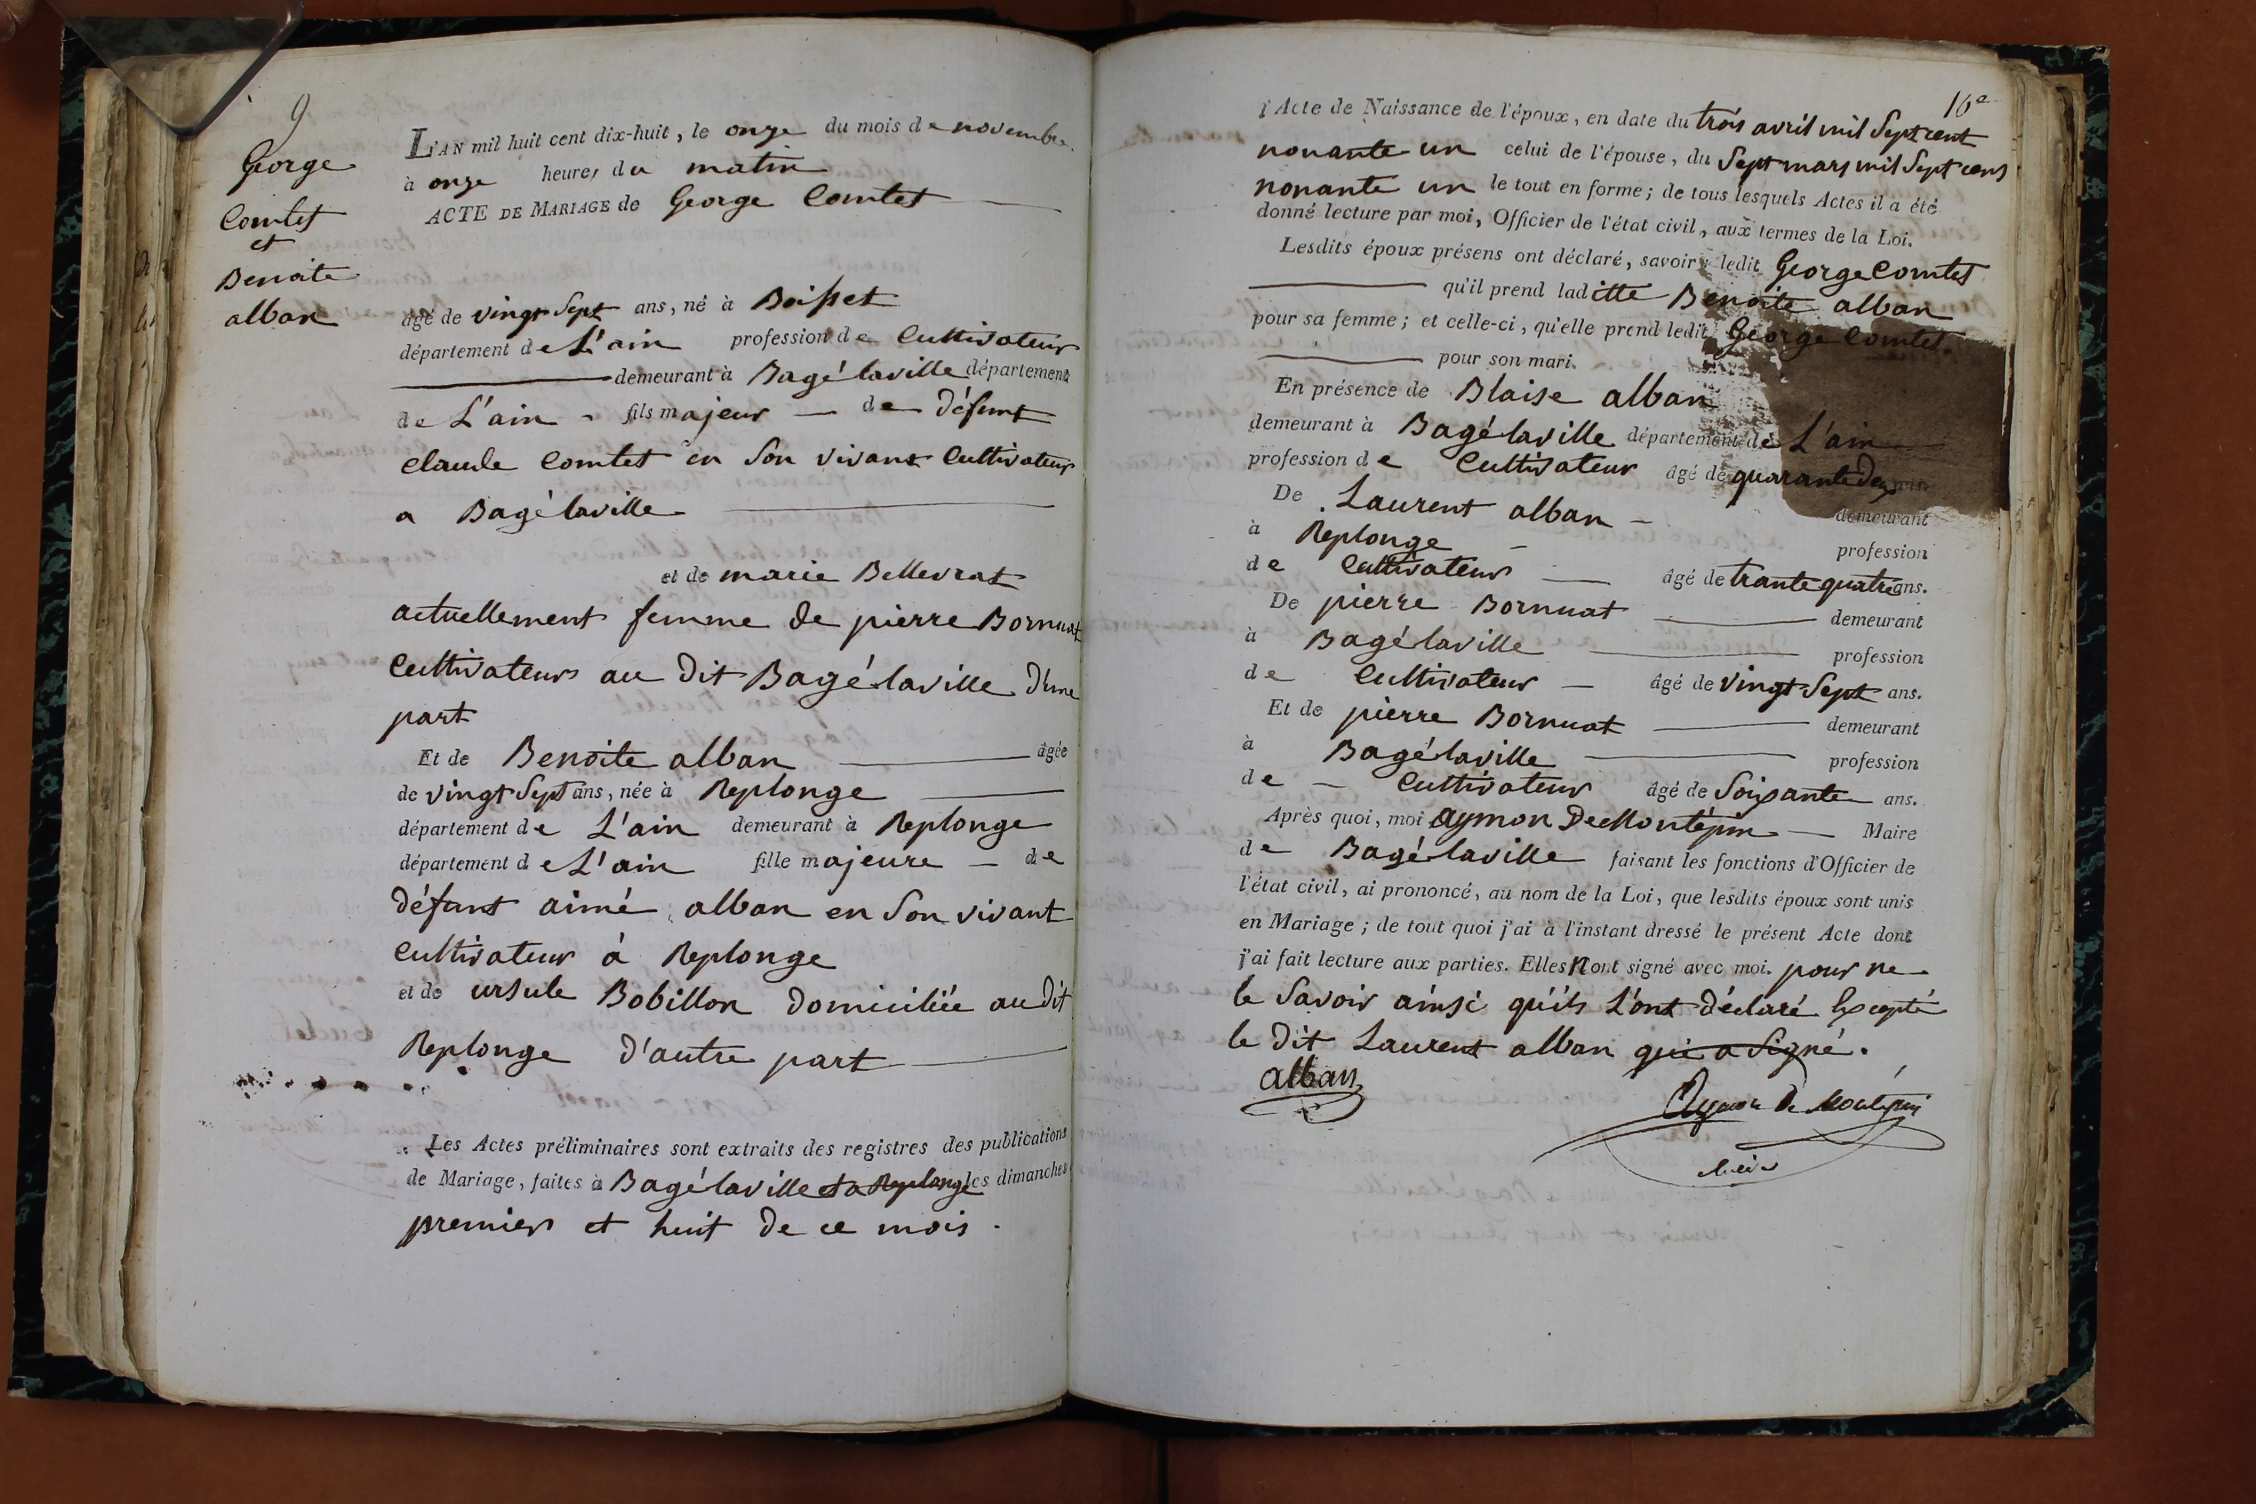 9
George
Comtet
et
Benoite
alban
L'AN mil huit cent dix-huit, le onze du mois de novembre.
à onze heures du matin
ACTE DE MARIAGE de George Comtet
âgé de vingt Sept ans, né à Boisset
département de L'ain profession de Cultivateur
demeurant à Bagé laville département
de L'ain fils majeur de défunt
claude Comtet en Son vivant Cultivateur
a Bagé laville
et de marie Bellevrat
actuellement femme de pierre Bornuat
Cultivateur au dit Bagé laville d'une
part
Et de Benoite alban âgée
de vingt Sept ans, née à Replonge
département de L'ain demeurant à Replonge
département de L'ain fille majeure de
défunt aimé alban en Son vivant
Cultivateur à Replonge
et de ursule Bobillon domiciliée au dit
Replonge d'autre part
Les Actes préliminaires sont extraits des registres des publications
de Mariage, faites à Bagé laville et a Replonge les dimanches
premier et huit de ce mois.
10e
l'Acte de Naissance de l'époux, en date du trois avril mil Sept cent
nonante un celui de l'épouse, du Sept mars mil Sept cens
nonante un le tout en forme; de tous lesquels Actes il a été
donné lecture par moi, Officier de l'état civil, aux termes de la Loi.
Lesdits époux présens ont déclaré, savoir; ledit George Comtet
qu'il prend laditte Benoite alban
pour sa femme; et celle-ci, qu'elle prend ledit George Comtet.
pour son mari.
En présence de Blaise alban
demeurant à Bagé laville département de L'ain
profession de Cultivateur âgé de quarante deux ans
De Laurent alban demeurant
à Replonge profession
de Cultivateur âgé de trante quatre ans.
De pierre Bornuat demeurant
à Bagé laville profession
de Cultivateur âgé de vingt Sept ans.
Et de pierre Bornuat demeurant
à Bagé laville profession
de Cultivateur âgé de Soixante ans.
Après quoi, moi Aymon De Montépin Maire
de Bagé laville faisant les fonctions d'Officier de
l'état civil, ai prononcé, au nom de la Loi, que lesdits époux sont unis
en Mariage; de tout quoi j'ai à l'instant dressé le présent Acte dont
j'ai fait lecture aux parties. Elles n'ont signé avec moi. pour ne
le Savoir ainsi qu'ils L'ont déclaré Excepté
le dit Laurent alban qui a Signé.
alban
Aymon de Montépin